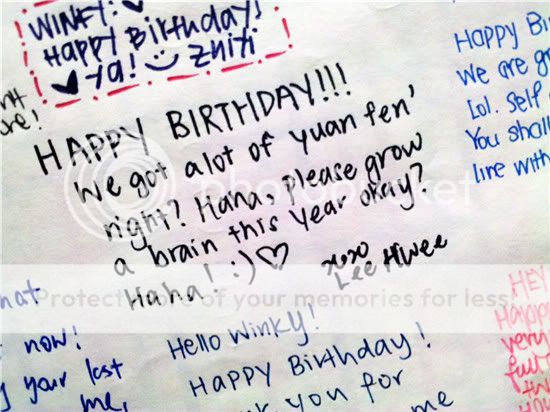 WINKY:
Happy Birthday!
♥ ya! :) Zhixi
HAPPY BIRTHDAY!!!
We got alot of yuan fen'
right? Haha, please grow
a brain this year okay?
Haha! :) ♡
xoxo
Lee Hwee
Happy Bi
We are gr
Lol. Self
You shall
live with
photobucket
Protect more of your memories for less!
now!
your last
me,
Hello Winky!
Happy Birthday!
you for
me
HEY
Happ
very
full